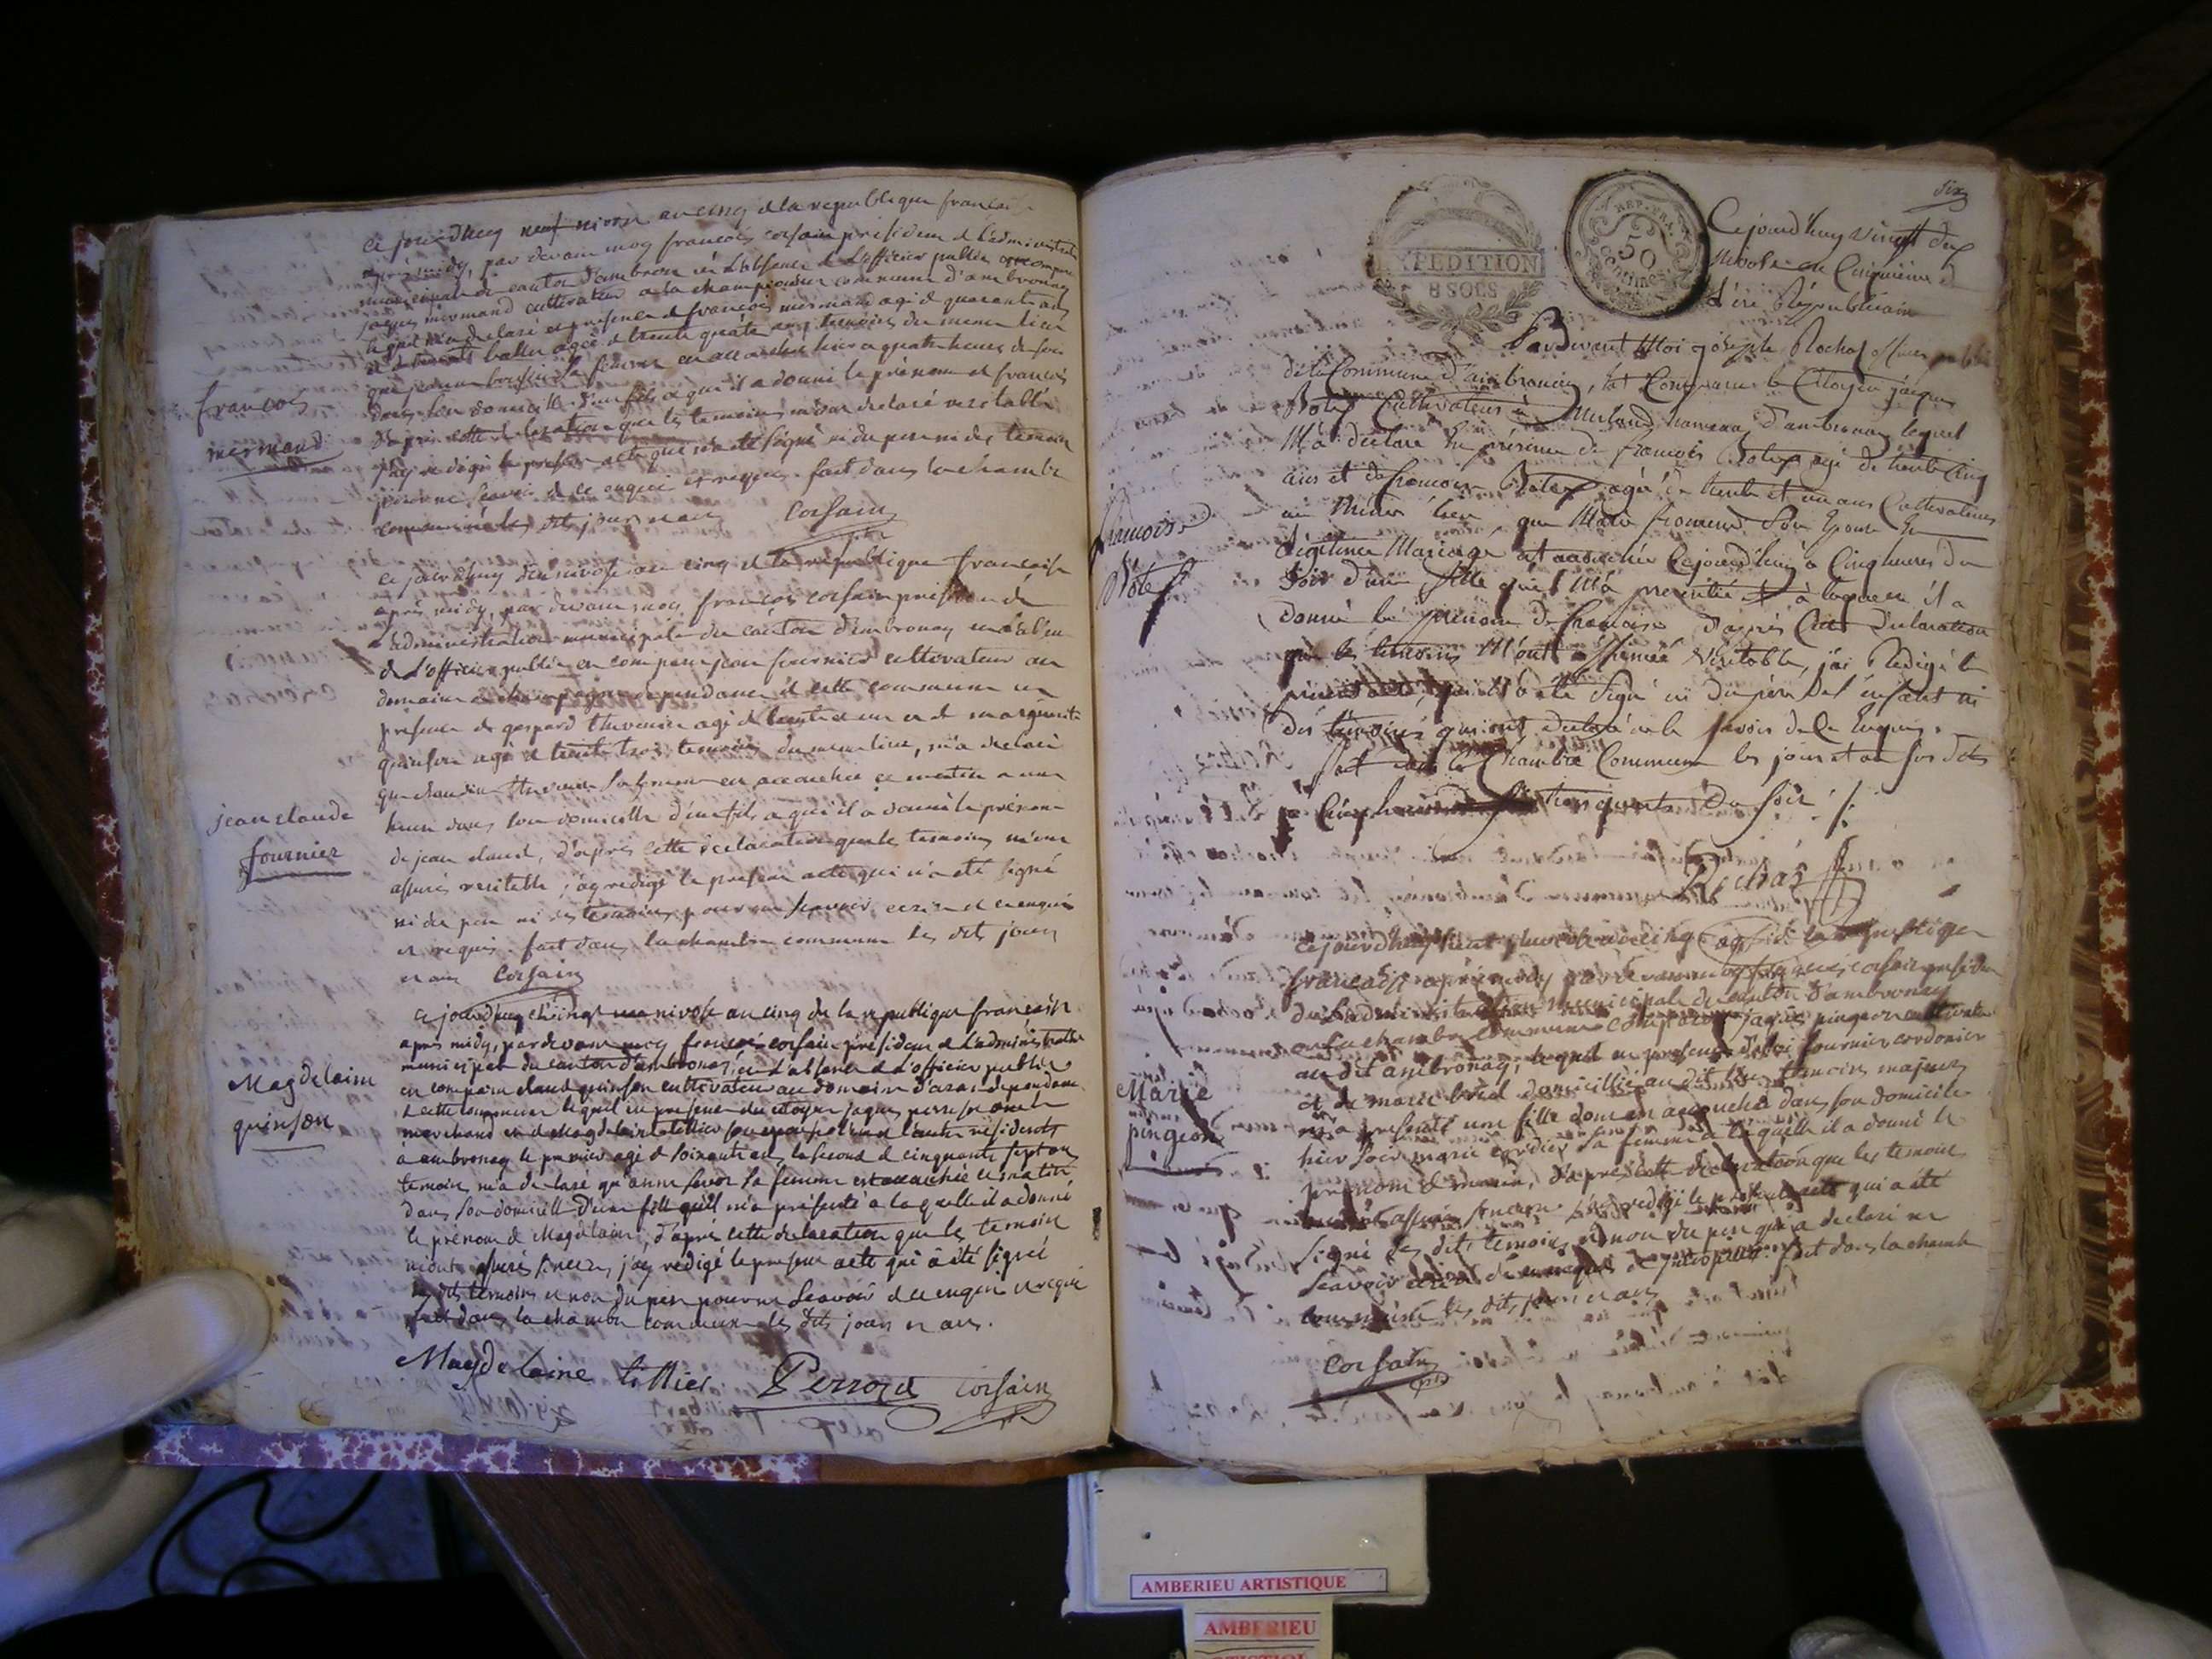 ce jourdhuy neuf nivose an cinq de la republique francaise
après midy, par devant moy françois corsain president de l'administration
municipale du canton d'ambronay en l'absence de l'officier public est comparu
jaques mermand cultivateur a la championiere commune d'ambronay
lequel m'a declaré en presence de françois mermand agé de quarante ans
et de ballet agée de trente quatre ans temoins du meme lieu
que jeanne sa femme est accouchée hier a quatre heures du soir
dans son domicille d'un fils a qui il a donné le prénom de francois
d'après cette declaration que les temoins m'ont declaré veritable
j'ay redigé le present acte qui n'a été signé ni du pere ni des temoins
pour ne scavoir de ce enquis et requis. fait dans la chambre
commune les dits jour et an corsain
francois
mermand
ce jourdhuy dix nivose an cinq de la republique francaise
après midy, par devant moy françois corsain president de
l'administration municipale du canton d'ambronay en l'absence
de l'officier public est comparu jean fournier cultivateur au
domaine de champagne dependance de cette commune en
presence de gaspard thevenin agé de trente et un et de marguerite
quinson agé de trente trois temoins du meme lieu, m'a declaré
que claudine thevenin sa femme est accouchée ce matin a une
heure dans son domicille d'un fils a qui il a donné le prénom
de jean claude, d'après cette declaration que les temoins m'ont
assuré veritable, j'ay redigé le present acte qui n'a été signé
ni du pere ni des temoins pour ne scavoir ecrire de ce enquis
et requis. fait dans la chambre commune les dits jour
et an corsain
jean claude
fournier
ce jourdhuy vingt un nivose an cinq de la republique francaise
apres midy, pardevant moy françois corsain president de l'administration
municipale du canton d'ambronay, en l'absence de l'officier public
est comparu claude quinson cultivateur au domaine d'aran dependance
de cette commune lequel en presence du citoyen jaques perrosset
marchand et de Magdelaine tillier son epouse l'un et l'autre residents
a ambronay le premier agé de soixante ans, la seconde de cinquante sept ans
temoins, m'a declaré qu'anne favor sa femme est accouchée ce matin
dans son domicille d'une fille qu'il m'a présenté a laquelle il a donné
le prénom de Magdelaine, d'après cette declaration que les temoins
m'ont assuré sincere, j'ay redigé le present acte qui a été signé
des dits temoins et non du pere pour ne scavoir de ce enquis et requis
fait dans la chambre commune les dits jour et an.
Magdelaine
quinson
Magdelaine tillier Perroset corsain
Six
EXPEDITION
8 SOLS
REP. FRA.
50
Centimes
Cejourd'huy vingt deux
Nivose an Cinquieme de
l'ère Républicaine
Pardevant Moi joseph Rochas officier public
de la Commune d'ambronay, est Comparu le Citoyen jacques
Botex Cultivateur à Merland hameau d'ambronay lequel
M'a déclaré En présence de françois Botex agé de trente Cinq
ans et de francoise Botex agée de trente et un ans Cultivateurs
au Même lieu, que Marie froment Son Epouse En
légitime Mariage est accouchée Cejourd'hui à Cinq heures du
Soir d'une fille qu'il M'a presentée et à laquelle il a
donné le prénom De francoise d'après Cette Déclaration
que les temoins M'ont affirmée Véritable, j'ai Rédigé le
présent acte, qui n'a été Signé ni du père De l'enfant ni
des témoins qui ont déclaré ne le savoir de Ce Enquis.
Fait dans la Chambre Commune les jour et an susdits
à Cinq heures trois quarts Du soir
Rochas
francoise
Botex
ce jourdhuy nivose an cinq de la republique
francaise après midy pardevant moy françois corsain president
de l'administration municipale du canton d'ambronay
en la chambre commune est comparu jaques pingeon cultivateur
au dit ambronay, lequel en presence d'eloi fournier cordonier
et de marie bred domicillié au dit lieu temoins majeurs
m'a presenté une fille dont est accouchée dans son domicile
hier soir marie cordier sa femme a laquelle il a donné le
prenom de marie, d'après cette declaration que les temoins
m'ont assuré sincere j'ay redigé le present acte qui a été
signé des dits temoins et non du pere qui a declaré ne
scavoir ecrire de ce enquis et fait dans la chambre
commune les dits jour et an
Marie
pingeon
corsain
AMBERIEU ARTISTIQUE
AMBERIEU
ARTISTIQUE